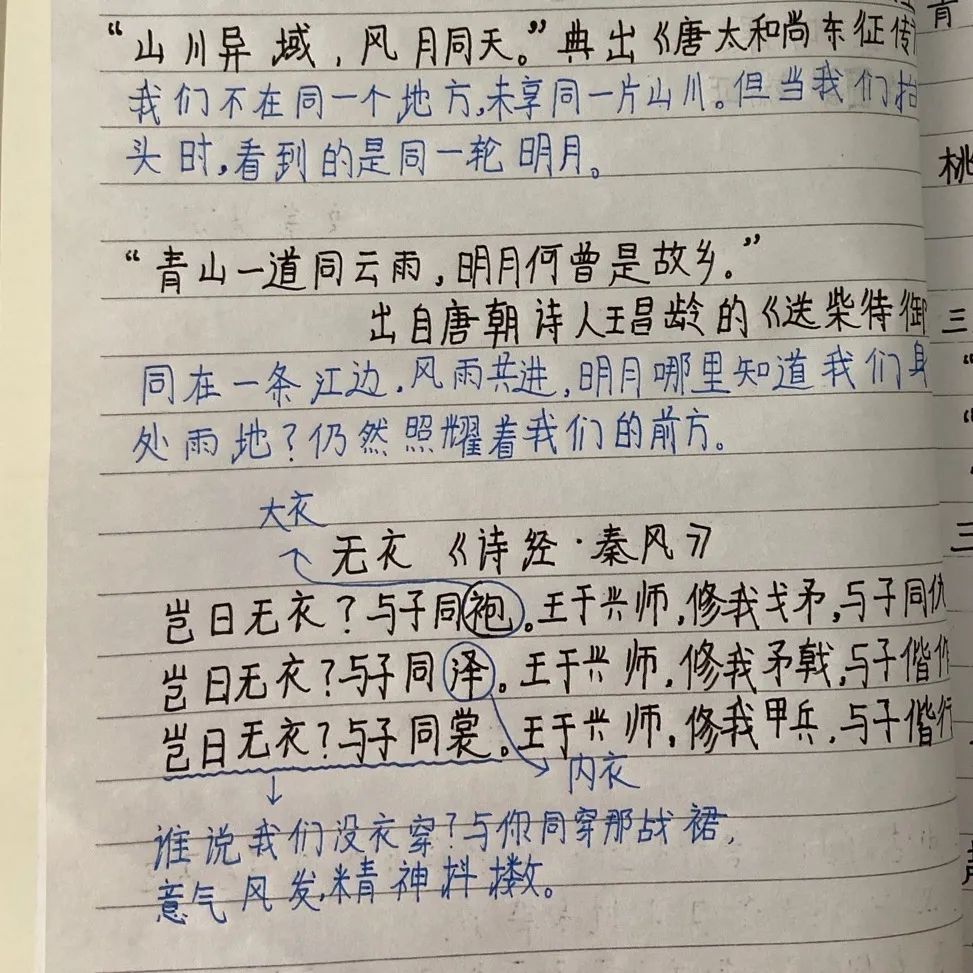 “山川异域，风月同天。”典出《唐太和尚东征传
我们不在同一个地方，未享同一片山川。但当我们抬
头时，看到的是同一轮明月。
“青山一道同云雨，明月何曾是故乡。”
出自唐朝诗人王昌龄的《送柴侍御
同在一条江边，风雨共进，明月哪里知道我们身
处雨地？仍然照耀着我们的前方。
大衣
无衣《诗经·秦风》
岂曰无衣？与子同袍。王于兴师，修我戈矛，与子同仇
岂曰无衣？与子同泽。王于兴师，修我矛戟，与子偕作
岂曰无衣？与子同裳。王于兴师，修我甲兵，与子偕行
内衣
谁说我们没衣穿？与你同穿那战裙，
意气风发，精神抖擞。
青
桃
三
三